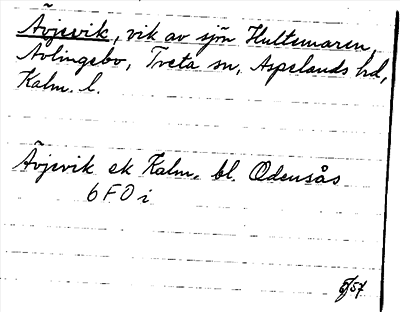 Åvjevik, vik av sjön Hultemaren,
Avlingebo, Tveta sn, Aspelands hd,
Kalm. l.
Åvjevik ek Kalm. bl. Odensås
6 F 0 i